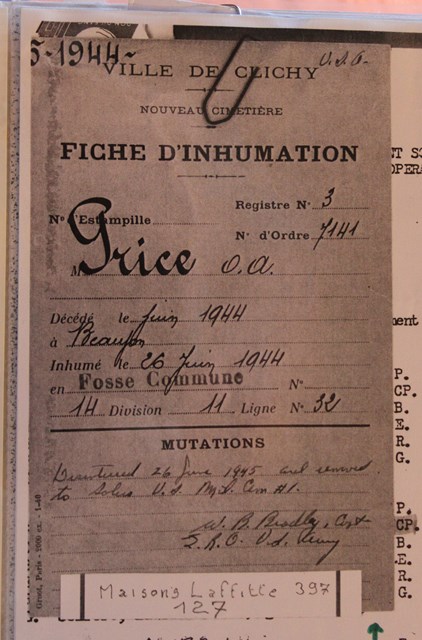 5-1944-
U.S.A-
VILLE DE CLICHY
NOUVEAU CIMETIÈRE
FICHE D'INHUMATION
Registre N° 3
N° d'Estampille
N° d'Ordre 7141
M Grice O.A.
Décédé le Juin 1944
à Beaujon
Inhumé le 26 Juin 1944
en Fosse Commune N°
14 Division 11 Ligne N° 32
MUTATIONS
Disinterred 26 June 1945 and removed
to Solers U.S. Mil Cem #1.
W. B. Bradley, Capt
G.R.O. U.S. Army
Maisons Laffitte 397
127
P.
CP.
B.
E.
R.
G.
P.
CP.
B.
E.
R.
G.